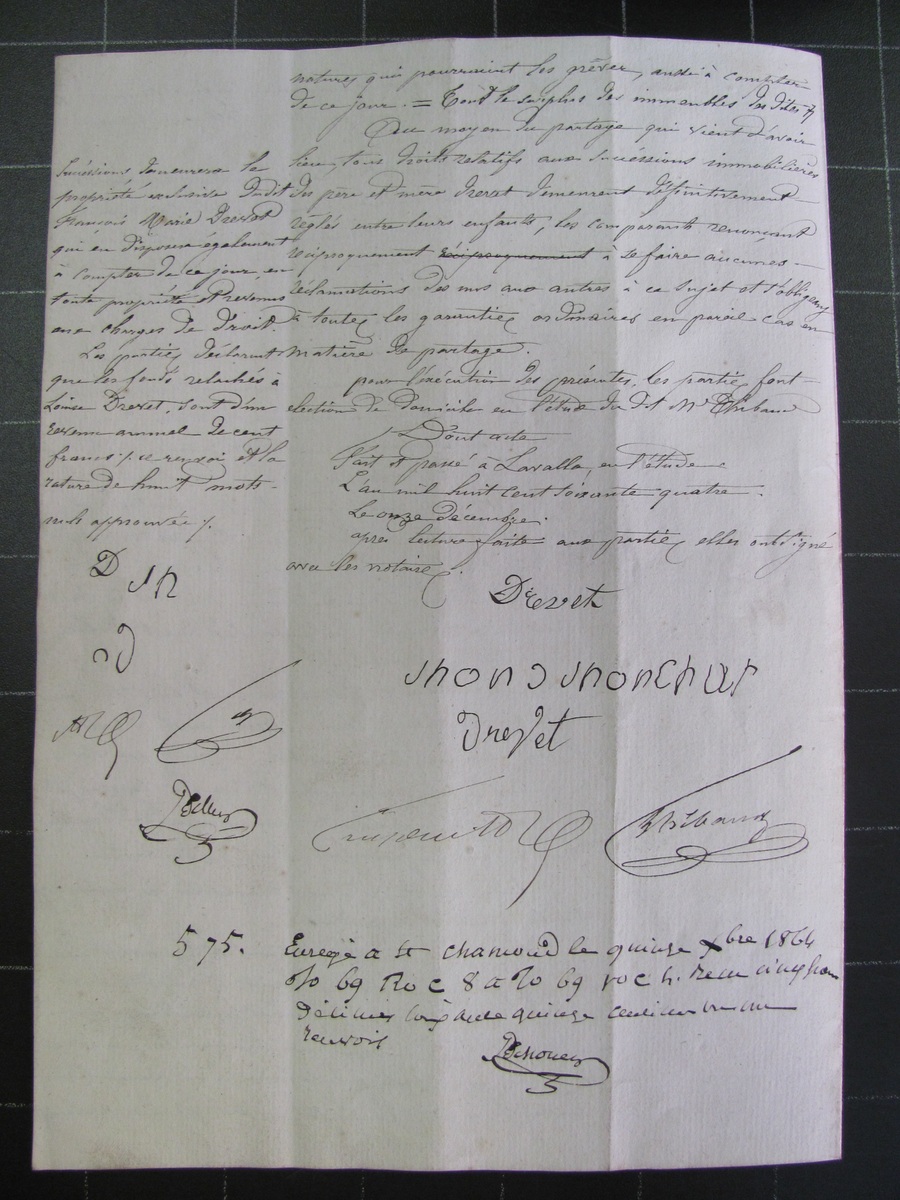 natures qui pourraient les grèver, aussi à compter
de ce jour. = Tout le surplus des immeubles des dites
Au moyen du partage qui vient d'avoir
lieu, tous droits relatifs aux successions immobilières
des père et mère Drevet demeurent définitivement
réglés entre leurs enfants, les comparants renonçant
réciproquement réciproquement à se faire aucunes
réclamations des uns aux autres à ce sujet et s'obligeant
à toutes les garanties ordinaires en pareil cas en
matière de partage.
pour l'exécution des présentes, les parties font
élection de domicile en l'étude du dit Me Thibaud
Dont acte
Fait et passé à Lavalla, en l'étude
L'an mil huit cent soixante quatre.
Le onze décembre.
après lecture faite aux parties, elles ont signé
avec les notaires.
successions demeurera la
propriété exclusive dudit
François Marie Drevet
qui en disposera également
à compter de ce jour, en
toute propriété et revenus
aux charges de droit.
Les parties déclarent
que les fonds relachés à
Louise Drevet, sont d'un
revenu annuel de cent
francs /. ce renvoi et la
rature de huit mots
nuls approuvés /.
D
Drevet
Drevet
Thibaud
575.
Enregé a St chamond le quinze Xbre 1864
fo 69 Ro c 8 a fo 69 vo c 4. Recu cinq francs
décimes soixante quinze centimes
renvois